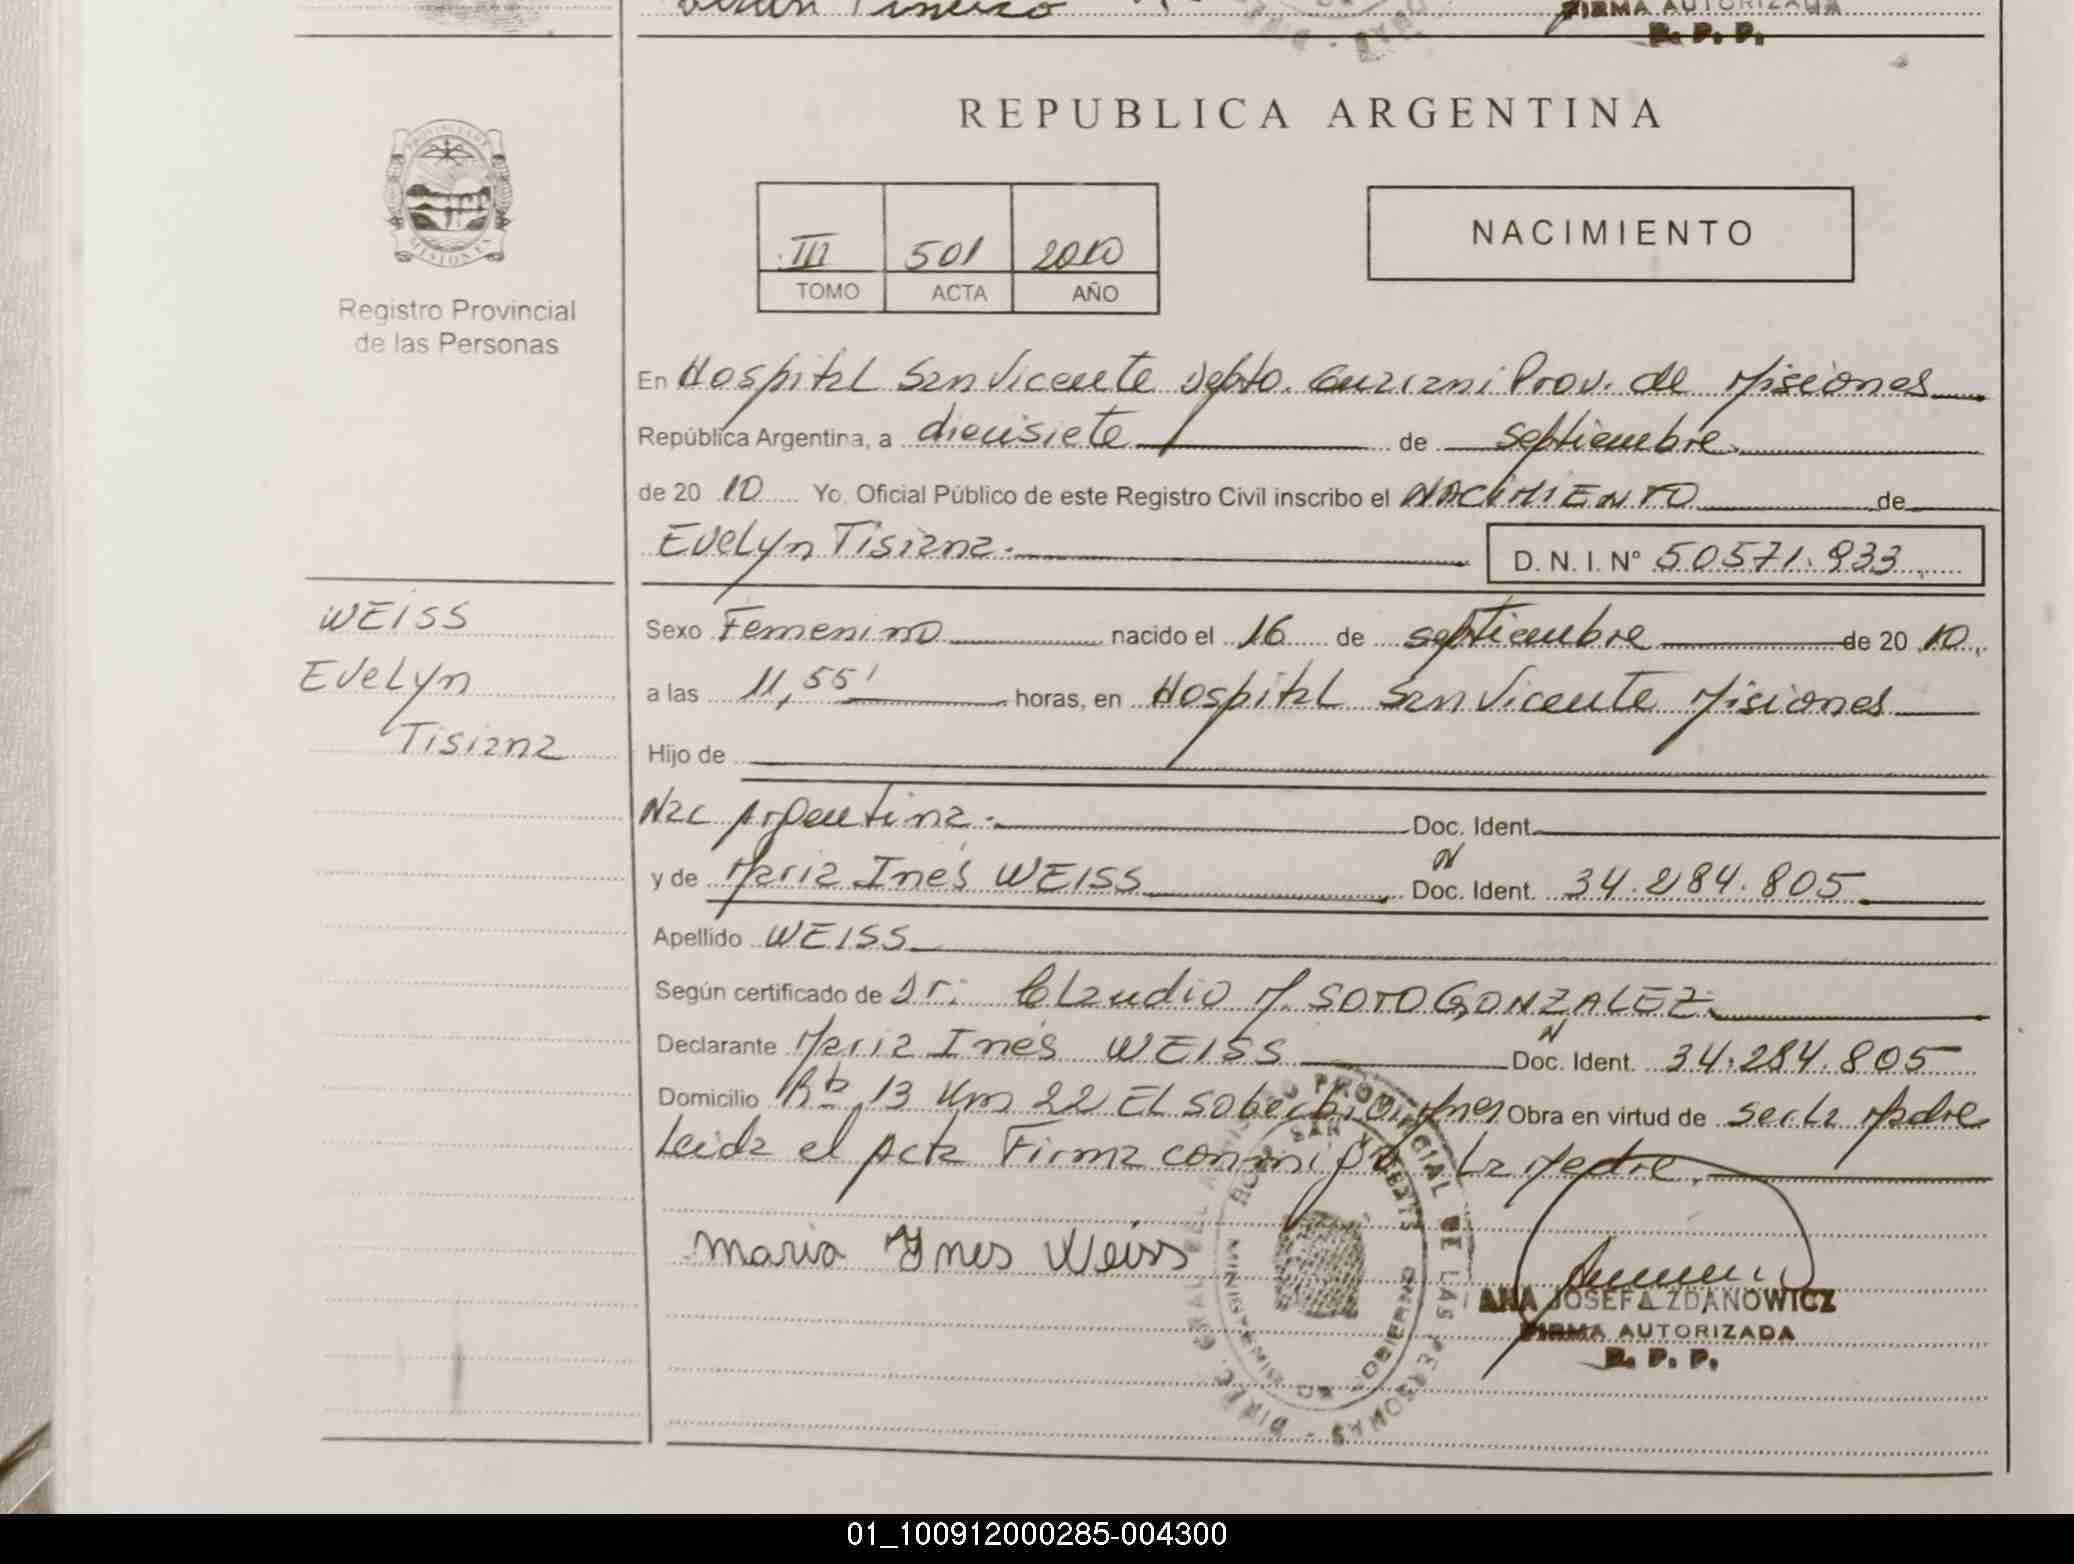 FIRMA AUTORIZADA
R. P. P.
REPUBLICA ARGENTINA
PROVINCIA DE
MISIONES
Registro Provincial
de las Personas
III 501 2010
TOMO ACTA AÑO
NACIMIENTO
En Hospital San Vicente Depto. Guarani Prov. de Misiones
República Argentina, a diecisiete de septiembre
de 20 10 Yo, Oficial Público de este Registro Civil inscribo el NACIMIENTO de
Evelyn Tisiana.
D. N. I. N° 50571.933
WEISS
Evelyn
Tisiana
Sexo Femenino nacido el 16 de septiembre de 20 10.
a las 11,55' horas, en Hospital San Vicente Misiones
Hijo de
Nac Argentina. Doc. Ident.
y de Maria Inés WEISS Doc. Ident. 34.284.805
Apellido WEISS
Según certificado de Dr. Claudio M SOTO GONZALEZ
Declarante Maria Inés WEISS Doc. Ident. 34.284.805
Domicilio 13 Km 22 El Soberbio Mnes Obra en virtud de ser la Madre
Leida el Acta Firma conmigo La Madre.
Maria Ynes Weiss
ANA JOSEFA ZDANOWICZ
FIRMA AUTORIZADA
R. P. P.
01_100912000285-004300